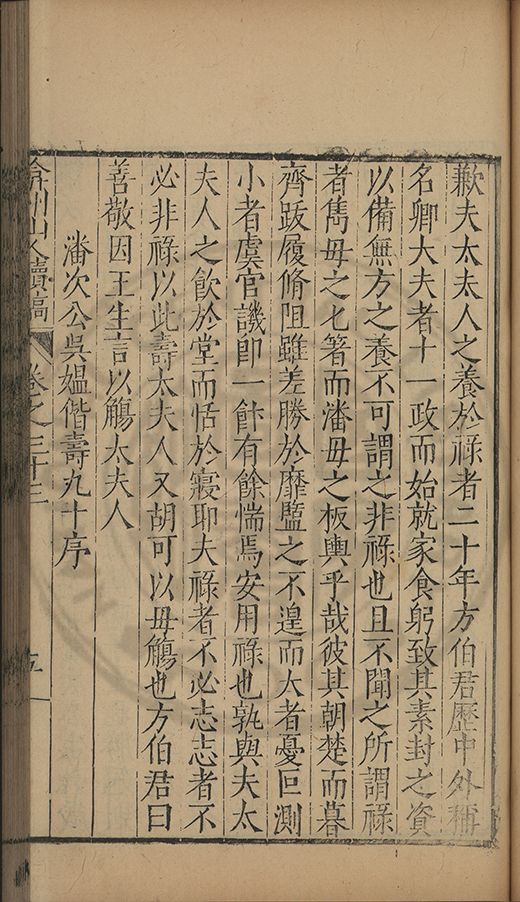 歉夫太夫人之養於祿者二十年方伯君歷中外稱
名卿大夫者十一政而始就家食躬致其素封之資
以備無方之養不可謂之非祿也且不聞之所謂祿
者雋毋之匕箸而潘毋之板輿乎哉彼其朝楚而暮
齊跋履脩阻雖差勝於靡盬之不遑而大者憂叵測
小者虞官譏即一飰有餘惴焉安用祿也孰與夫太
夫人之飲於堂而恬於寢耶夫祿者不必志志者不
必非祿以此壽太夫人又胡可以毋觴也方伯君曰
善敬因王生言以觴太夫人
潘次公吳媼偕壽九十序
弇州山人續稿 卷之三十三 五